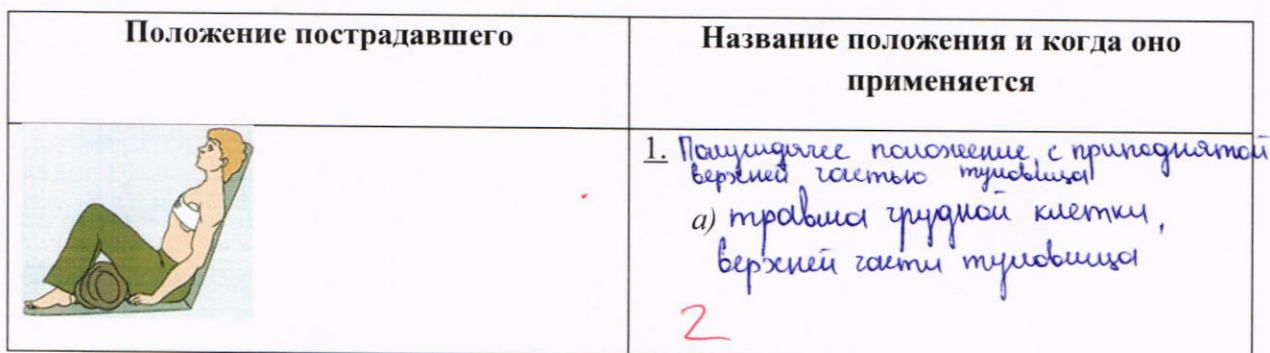 Положение пострадавшего
Название положения и когда оно
применяется
1. Полусидячее положение, с приподнятой
верхней частью туловища
а) травма грудной клетки,
верхней части туловища
2